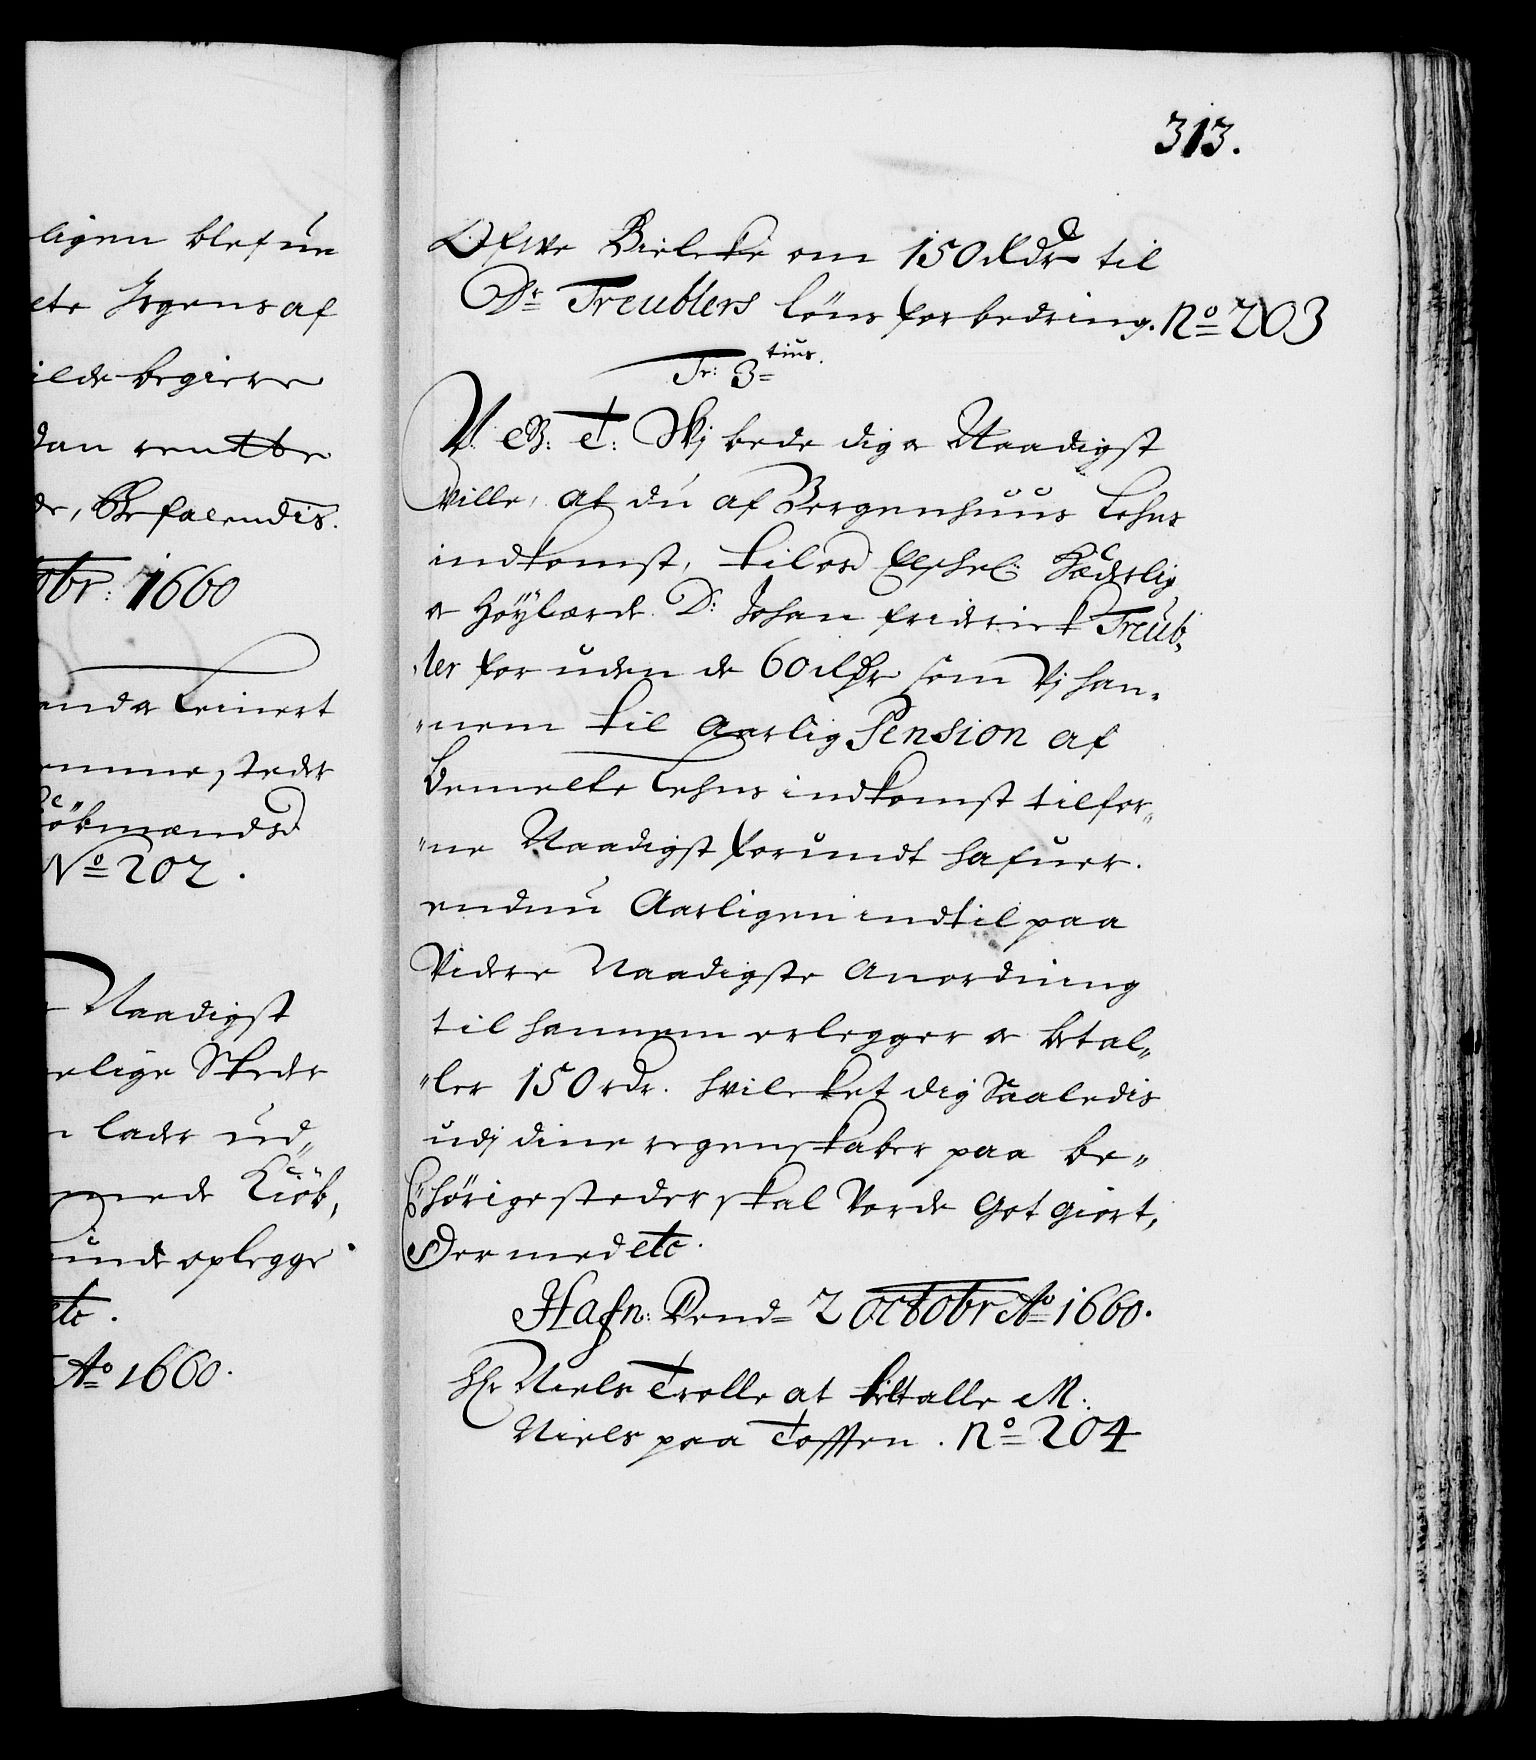 ligen blef un
ete Irgens af
ilde begiere
dan rentte
de, Befalendis.
obr: 1660
ende Leinert
omme steder
Kiöbmænd
No 202.
Naadigst
elige Steder
n lader ud„
mede Kiöb,
unde oplegge
etc.
Ao 1660.
313.
Ofwe Bielcke om 150 Rdr til
Dr Treublers löns forbedring. No 203
Fr: 3tius.
V. G: T: Vj bede dig oc Naadigst
ville, at du af Bergenhuus Lehns
indkomst, til os Elschel: Hæderlig
oc Höylærde Dr: Johan Friderick Treub„
„ler for uden de 60 Rdr som Vj han„
„nem til Aarlig Pension af
bemelte Lehns indkomst tilfor„
„ne Naadigst forundt hafuer.
endnu Aarligen indtil paa
Videre Naadigste Anordning
til hannem erlegger oc betal„
„ler 150 rdr. hvilcket dig Saaledis
udj dine regenskaber paa be„
„hörige steder skal Vorde Got giort,
Der med etc.
Hafn: Dend 2 octobr Ao 1660.
Hr Niels Trolle at betalle M:
Niels paa Toffen. No 204